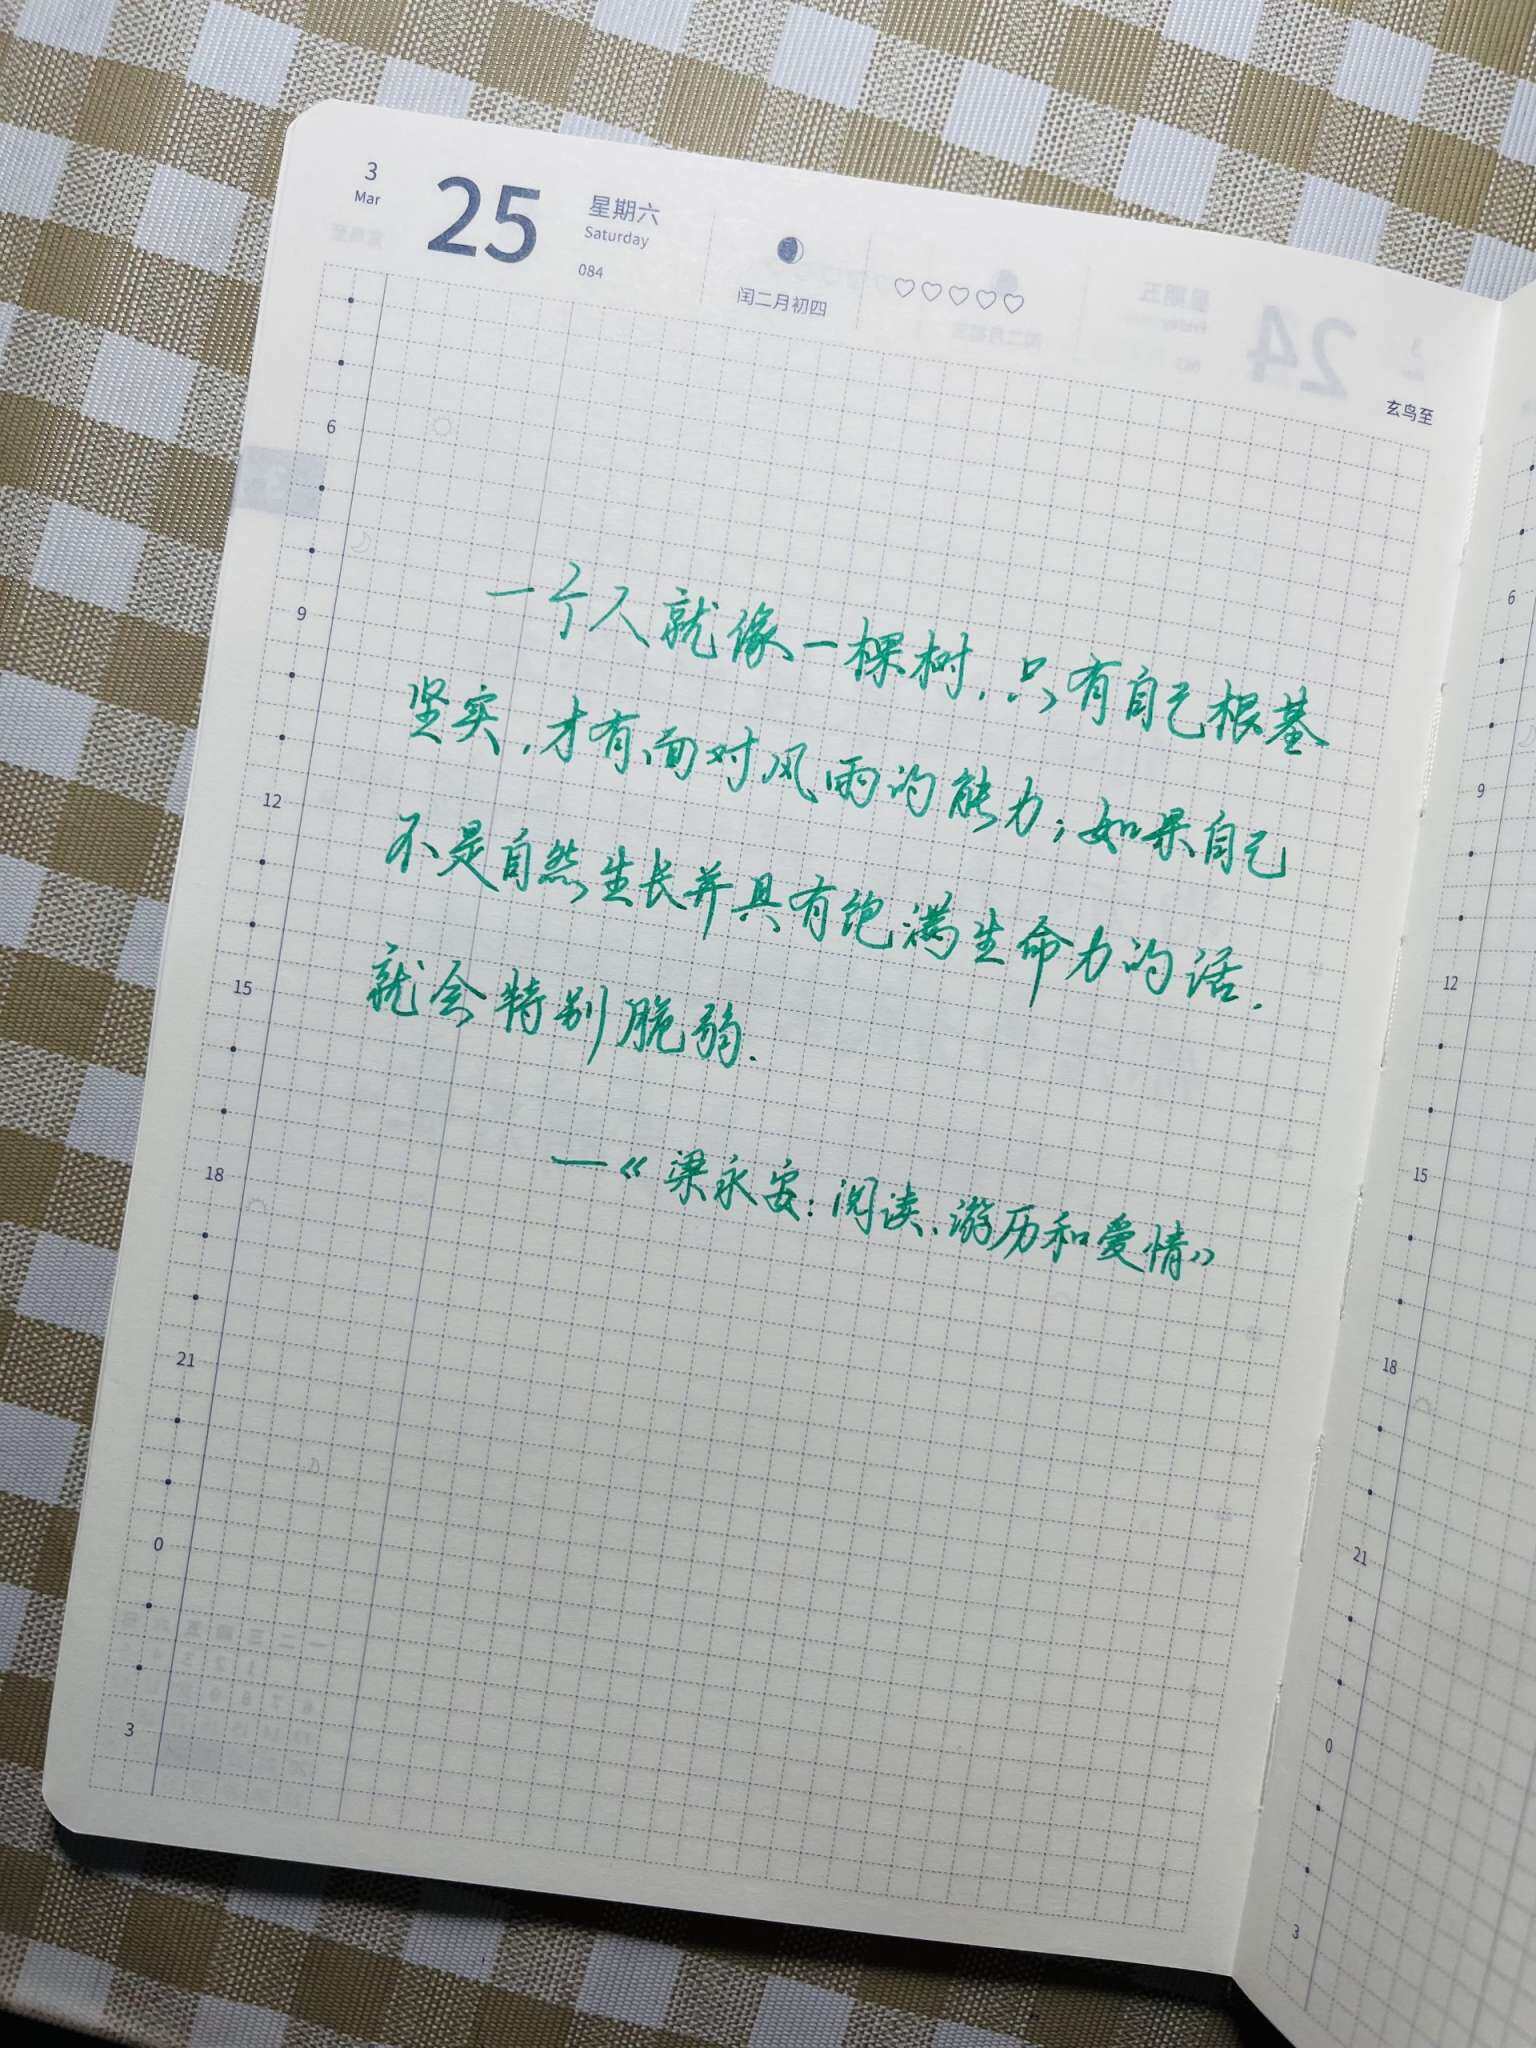 3
Mar
25
星期六
Saturday
084
闰二月初四
玄鸟至
一个人就像一棵树，只有自己根基
坚实，才有面对风雨的能力；如果自己
不是自然生长并具有饱满生命力的话．
就会特别脆弱．
—《梁永安：阅读、游历和爱情》
6
9
12
15
18
21
0
3
6
9
12
15
18
21
0
3